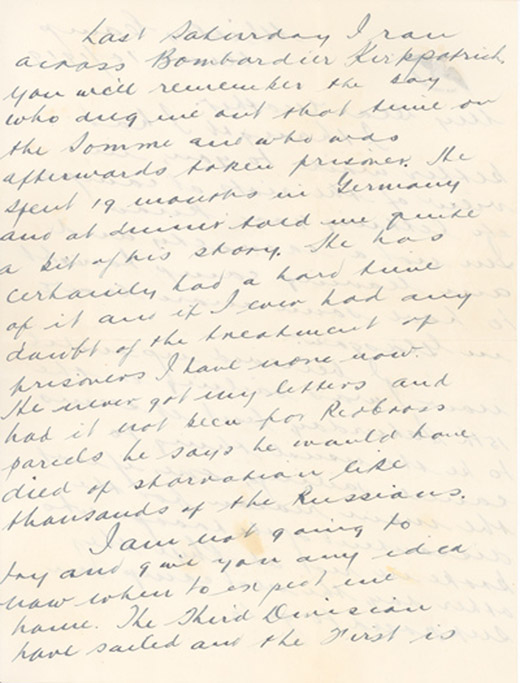 Last Saturday I ran
across Bombardier Kirkpatrick.
You will remember the boy
who dug me out that time on
the Somme and who was
afterwards taken prisoner. He
spent 19 months in Germany
and at dinner told me quite
a bit of his story. He has
certainly had a hard time
of it and if I ever had any
doubt of the treatment of
prisoners I have none now.
He never got my letters and
had it not been for Redcross
parcels he says he would have
died of starvation like
thousands of the Russians.
I am not going to
try and give you any idea
now when to expect me
home. The Third Division
have sailed and the First is